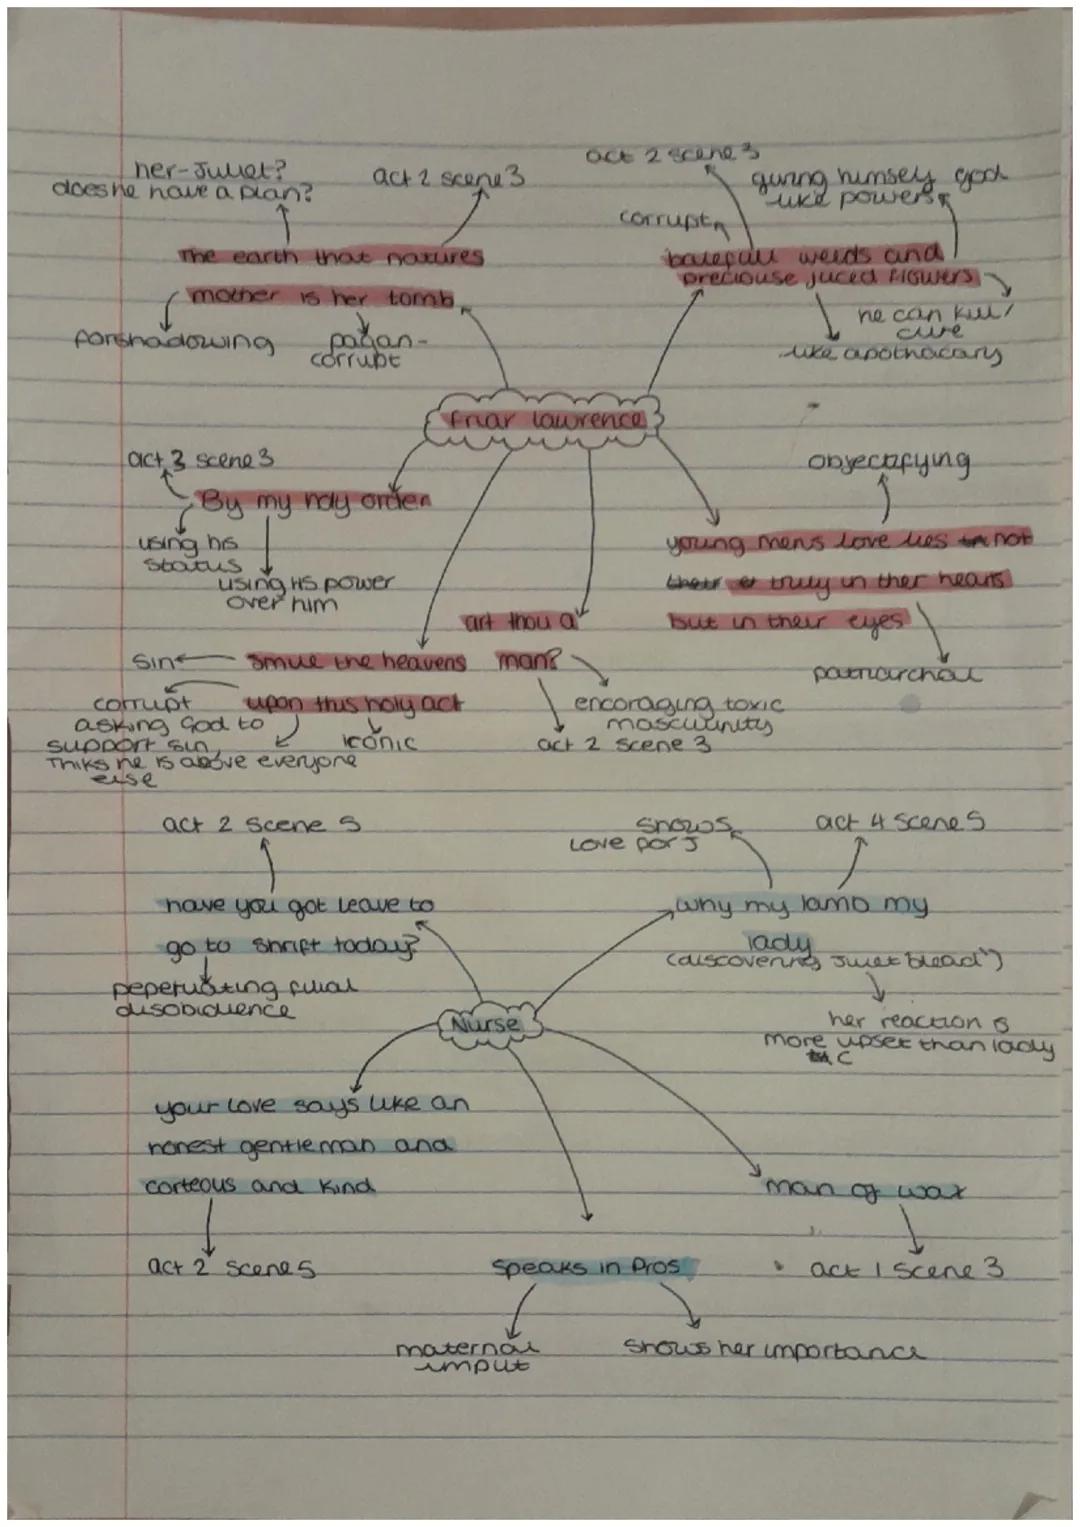 her-Juliet?
does he have a plan?
act 2 scene 3
The earth that natures
mother is her tomb
forshadowing
pagan-
corrupt
act 2 scene 3
giving himself god
like powers
corrupt
balefull weids and
preciouse juced Flowers
he can kill/
cure
like apothacary
friar lawrence
act 3 scene 3
By my holy order
using his
status
using his power
over him
objectifying
young mens love lies not
truly in ther hearts
but in their eyes
patriarchal
art thou a
man?
encoraging toxic
masculinity
act 2 scene 3
smile the heavens
upon this holy act
sin
corrupt
asking God to
support sin,
Thiks he is above everyone
else
iconic
act 2 scene 5
have you got leave to
go to shrift today?
peperuating filial
disobidience
shows
love for J
act 4 scene 5
why my lamb my
lady
(discovering Juliet "dead")
her reaction is
more upset than lady
C
Nurse
your love says like an
honest gentleman and
corteous and kind
act 2 scene 5
speaks in Pros
maternal
imput
shows her importance
man of wax
act 1 scene 3